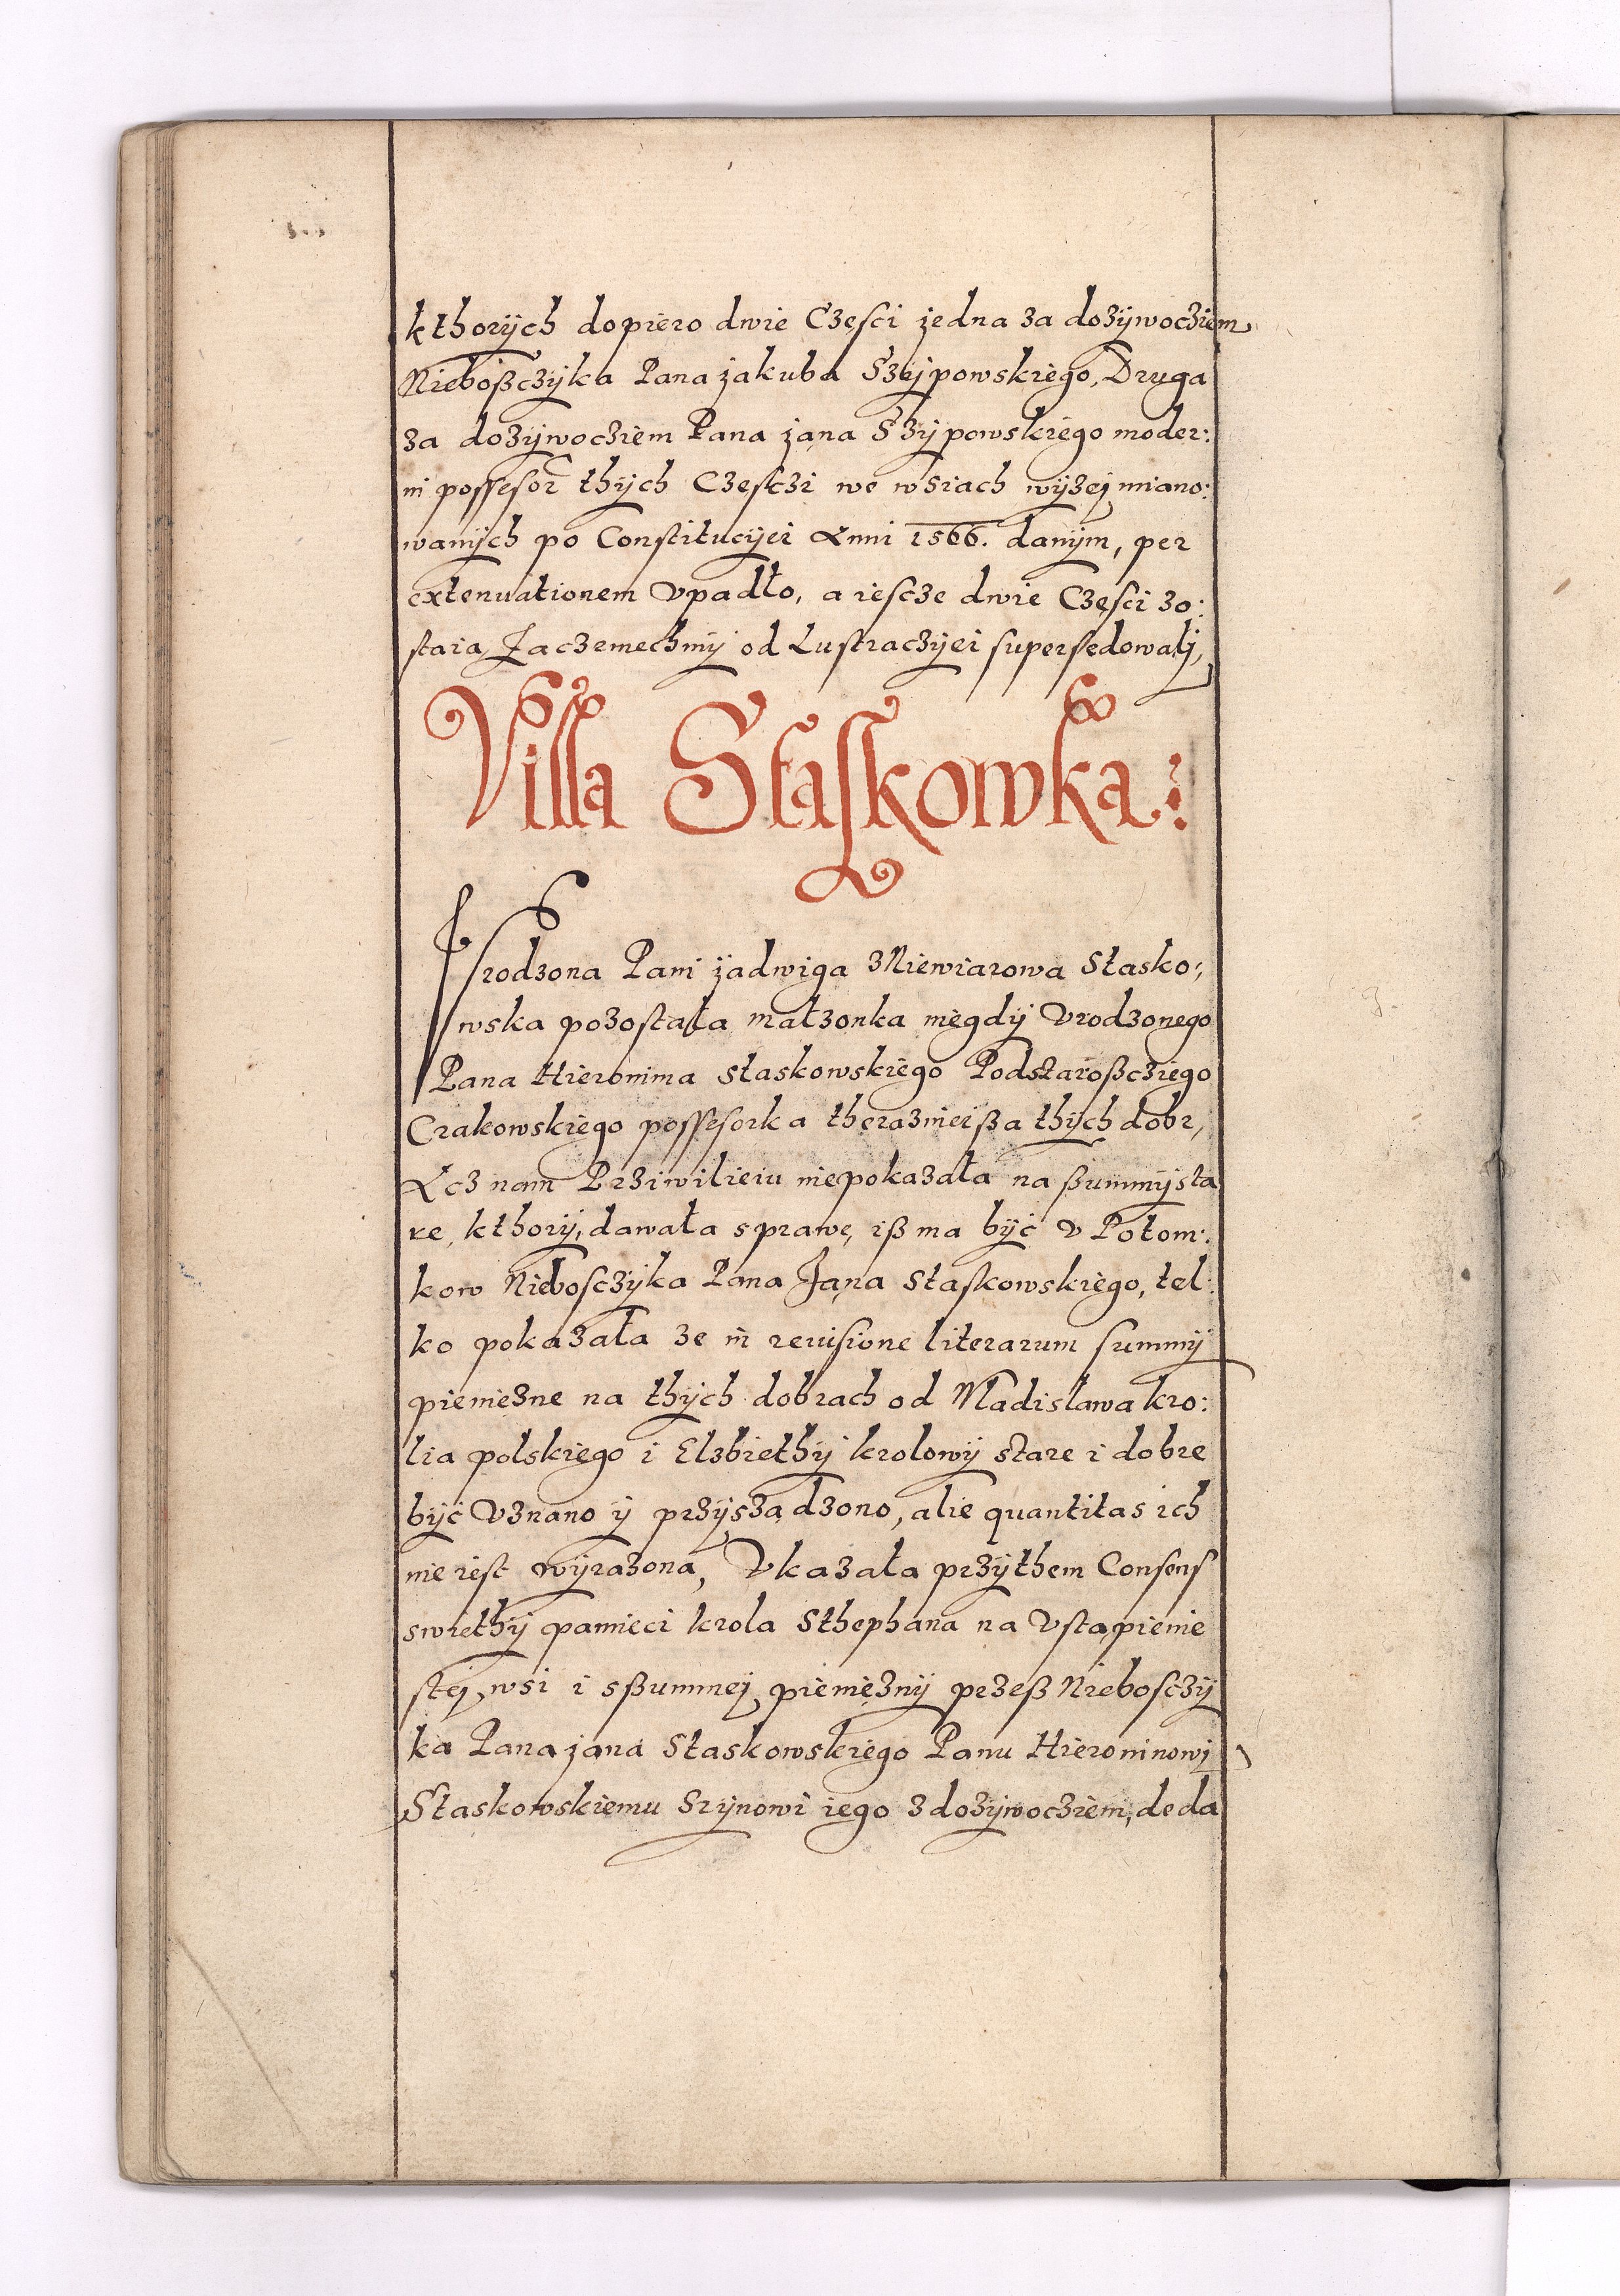 kthorÿch dopiero dwie Częsci jedna za dożÿwoczięm
Nieboßczÿka Pana jakuba Szÿpowskiego, Druga
za dożÿwocziem Pana jana Szÿpowskiego moder:
ni possesor thÿch Częsczi we wsiach wÿżej miano:
wanÿch po Constitucÿei Anni 1566. danÿm, per
extenuationem Vpadło, a iescze dwie Częsci zo:
staią Zaczemechmÿ od Lustraczÿei supersedowalÿ,
Villa Staskowka:
Vrodzona Pani jadwiga z Niewiarowa Stasko:
wska pozostała małzonka niegdÿ Vrodzonego
Pana Hieronima Staskowskiego Podstaroßcziego
Crakowskiego possesorka theraznieißa thÿch dobr,
Acz nam Prziwilieiu niepokazała na ßummÿ sta
re, kthorÿ, dawała sprawę, iß ma bÿć v Potom:
kow Nieboscżÿka Pana Jana Staskowskiego, tel:
ko pokazała że in reuisione literarum summÿ
pieniężne na thÿch dobrach od Wladislawa kro:
lia polskiego i Elzbiethÿ krolowÿ stare i dobre
bÿć Vznano ÿ przÿsządzono, alie quantitas ich
nie iest wÿrazona, Vkazała przÿthem Consens
swiethÿ pamieci krola Sthephana na Vstąpienie
stej wsi i sßummej pieniężnÿ przeß Nieboscżÿ
ka Pana jana Staskowskiego Panu Hieroninowi
Staskowskiemu Szÿnowi iego z dożÿwocziem, de da